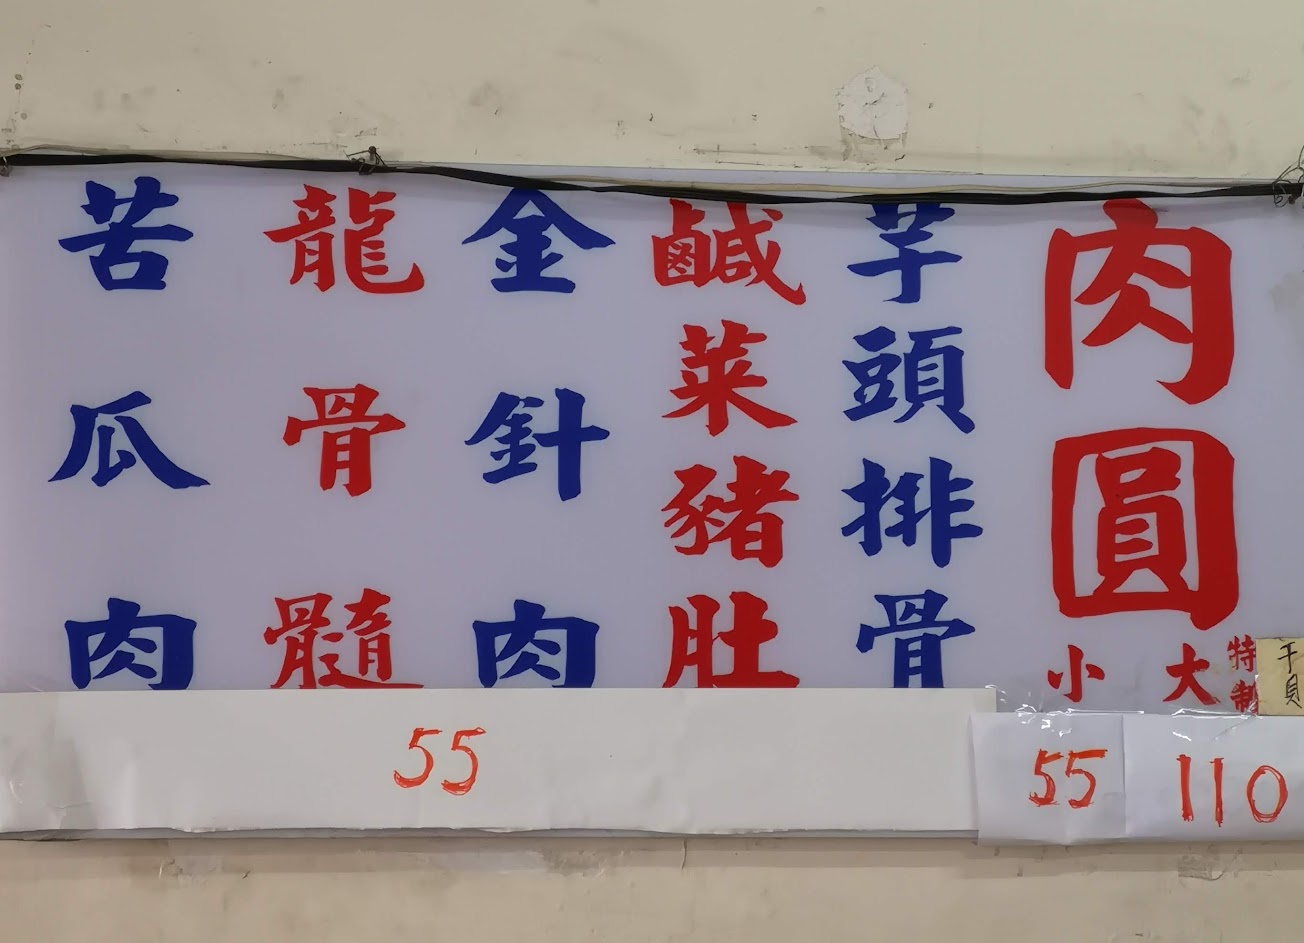 肉圓
小 55
大 特制 干貝 110
芋頭排骨
鹹菜豬肚
金針肉
龍骨髓
苦瓜肉
55